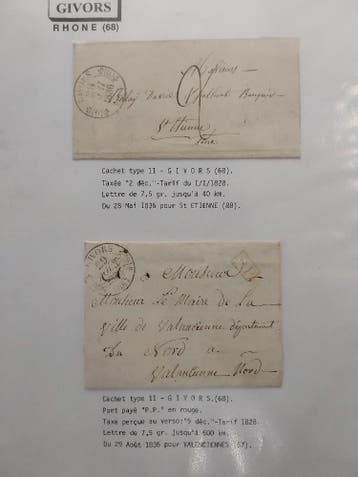 GIVORS
RHONE (68)
Messieurs
St Etienne
Loire
Cachet type 11 - G I V O R S (68).
Taxée "2 déc."-Tarif du 1/1/1828.
Lettre de 7,5 gr. jusqu'à 40 km.
Du 28 Mai 1836 pour St ETIENNE (88).
GIVORS
a Monsieur
Monsieur Le Maire de La
Ville de Valancienne département
Du Nord a
Valancienne Nord
Cachet type 11 - G I V O R S.(68).
Port payé "P.P." en rouge.
Taxe perçue au verso:"9 déc."-Tarif 1828.
Lettre de 7,5 gr. jusqu'à 600 km.
Du 29 Août 1836 pour VALENCIENNES (57).